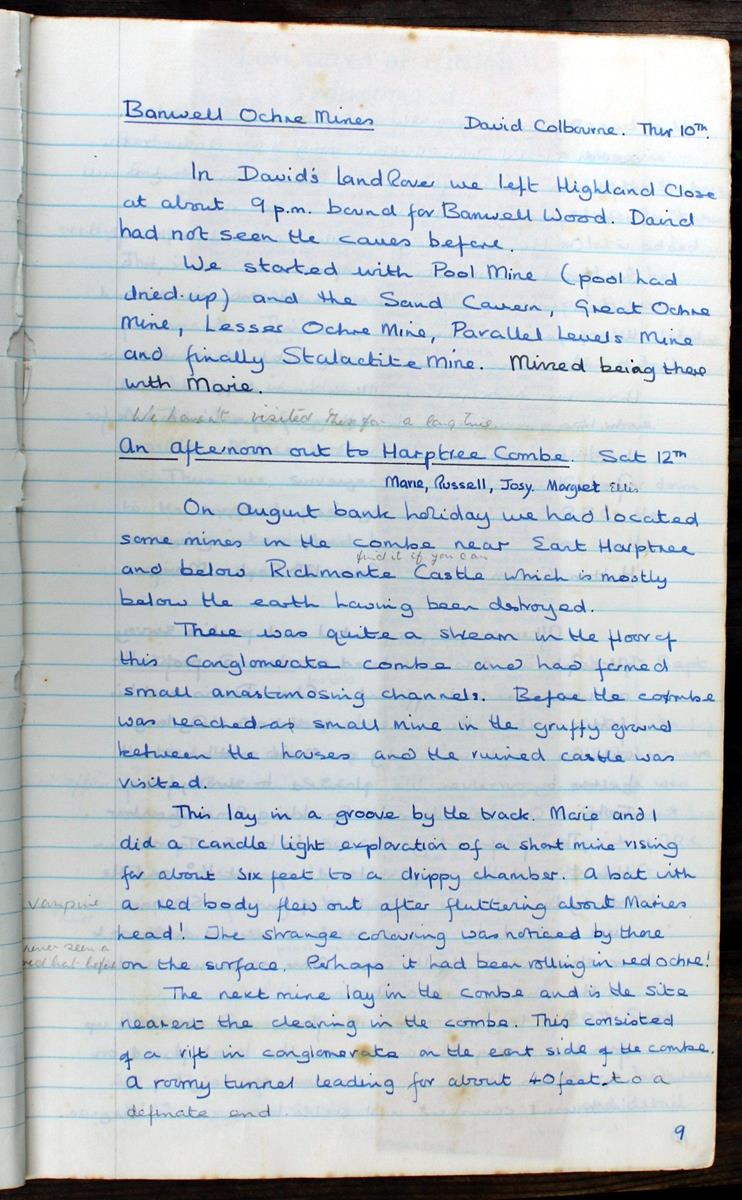 Banwell Ochre Mines David Colbourne. Thur 10th.
In David's LandRover we left Highland Close
at about 9 p.m. bound for Banwell Wood. David
had not seen the caves before.
We started with Pool Mine (pool had
dried up) and the Sand Cavern, Great Ochre
Mine, Lesser Ochre Mine, Parallel Levels Mine
and finally Stalactite Mine. Missed being there
with Marie.
We haven't visited this for a long time.
An afternoon out to Harptree Combe. Sat 12th
Marie, Russell, Josy. Margret Ellis
On August bank holiday we had located
some mines in the combe near East Harptree
find it if you can
and below Richmonte Castle which is mostly
below the earth having been destroyed.
There was quite a stream in the floor of
this Conglomerate combe and had formed
small anastamosing channels. Before the combe
was reached a small mine in the gruffy ground
between the houses and the ruined castle was
visited.
This lay in a groove by the track. Marie and I
did a candle light exploration of a short mine rising
for about six feet to a drippy chamber. A bat with
vampire
a red body flew out after fluttering about Maries
head! The strange colouring was noticed by those
never seen a
red bat before
on the surface. Perhaps it had been rolling in red ochre!
The next mine lay in the combe and is the site
nearest the clearing in the combe. This consisted
of a rift in conglomerate on the east side of the combe.
A roomy tunnel leading for about 40 feet to a
definate end.
9